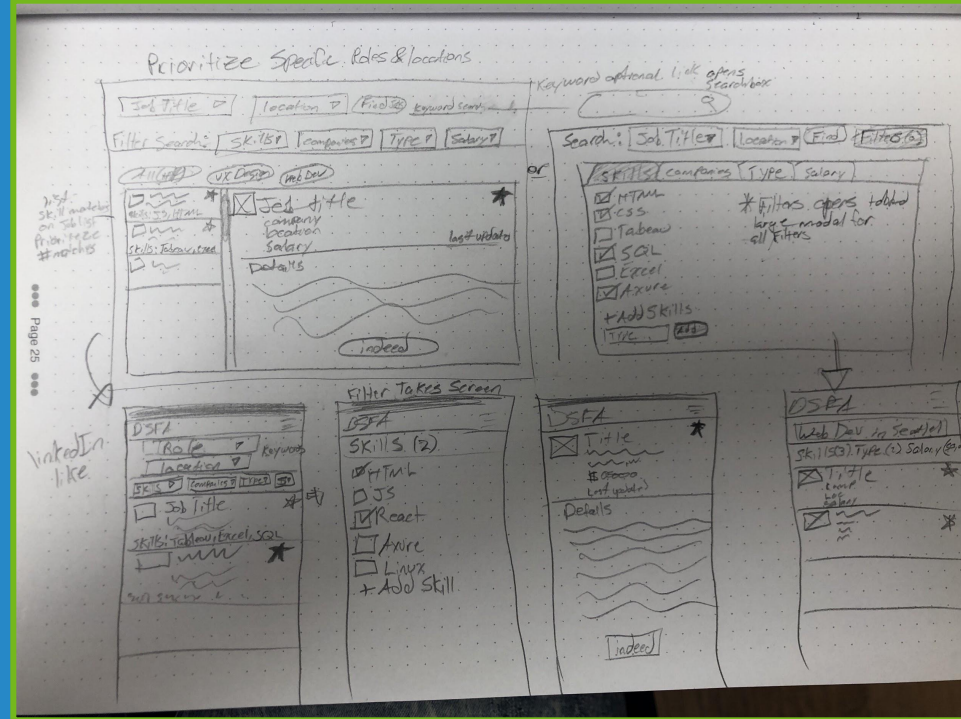 Prioritize Specific Roles & locations
Keyword optional link opens
Searchbox
Job Title
location
Find
keyword search
Filter Search:
Skills
Companies
Type
Salary
All
UX Design
Web Dev
skill matches
on Job list
Prioritize
# matches
Skills: JS, HTML
Skills: Tableau, Excel
Job title
company
location
Salary
last updated
Details
indeed
or
Search: Job Title
Location
Find
Filters
Skills
Companies
Type
Salary
HTML
CSS
Tableau
SQL
Excel
Axure
+Add Skills
Add
* Filters opens
large modal for
all Filters
Page 25
linkedIn
like
DSFA
Role
Keyword
location
Job Title
Skills: Tableau, Excel, SQL
Filter Takes Screen
DSFA
Skills (2)
HTML
JS
React
Axure
Linux
+ Add Skill
DSFA
Title
Details
indeed
DSFA
Web Dev in Seattle
Skills(3) Type
Title